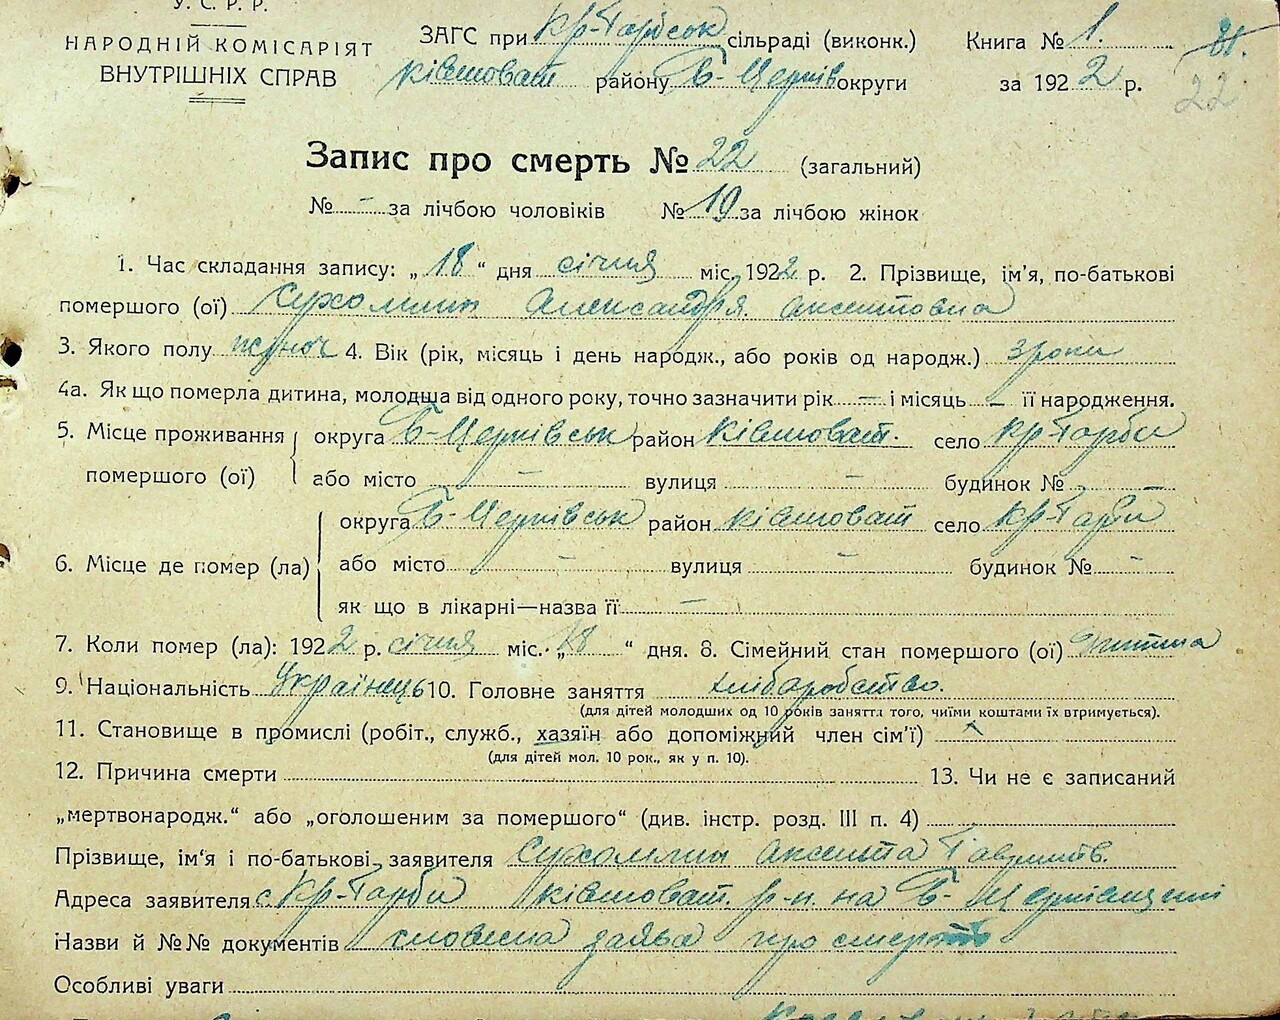 У. С. Р. Р.
НАРОДНІЙ КОМІСАРІЯТ
ВНУТРІШНІХ СПРАВ
ЗАГС при Кр-Гарбськ сільраді (виконк.)
Ківшоват району Б-Церків округи
Книга № 1.
за 1922 р.
22
Запис про смерть № 22 (загальний)
№ - за лічбою чоловіків № 19 за лічбою жінок
1. Час складання запису: „18“ дня січня міс. 1922 р. 2. Прізвище, ім'я, по-батькові
помершого (ої) Сухомлин Александря Аксентовна
3. Якого полу жіноч 4. Вік (рік, місяць і день народж., або років од народж.) 3 роки
4а. Як що померла дитина, молодша від одного року, точно зазначити рік — і місяць — її народження.
5. Місце проживання помершого (ої) округа Б-Церківськ район Ківшоват. село Кр-Гарби
або місто — вулиця — будинок № —
6. Місце де помер (ла) округа Б-Церківськ район Ківшоват село Кр-Гарби
або місто - вулиця - будинок № -
як що в лікарні—назва її —
7. Коли помер (ла): 1922 р. січня міс. „18“ дня. 8. Сімейний стан помершого (ої) Дитина
9. Національність Українець 10. Головне заняття хліборобство.
(для дітей молодших од 10 років заняття того, чиїми коштами їх втримується).
11. Становище в промислі (робіт., служб., хазяїн або допоміжний член сім'ї)
(для дітей мол. 10 рок., як у п. 10).
12. Причина смерти 13. Чи не є записаний
„мертвонародж.“ або „оголошеним за помершого“ (див. інстр. розд. III п. 4)
Прізвище, ім'я і по-батькові заявителя Сухомлин Аксента
Адреса заявителя с. Кр-Гарби Ківшоват. р-н. на Б-Церківщині
Назви й №№ документів словесна заява про смерть
Особливі уваги